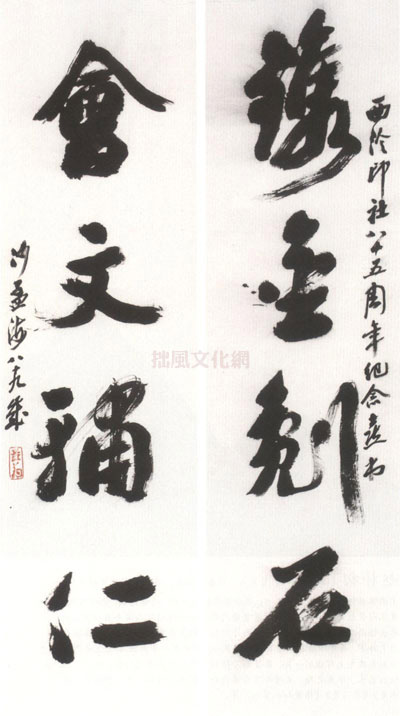 西泠印社八十五周年紀念書
鐫金刻石
會文輔仁
沙孟海八九歲
拙風文化網